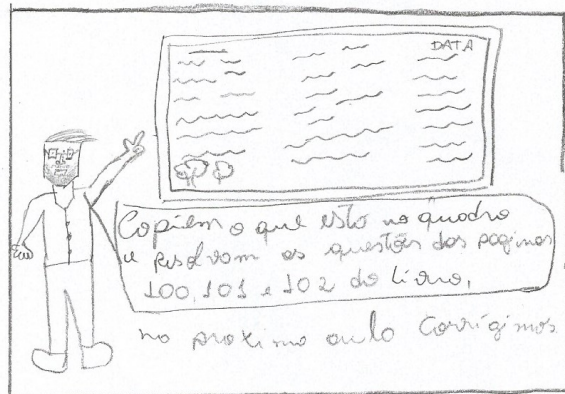 DATA
Copiem o que esto no quadro
e resolvam as questões das paginas
100, 101 e 102 do livro,
na proxima aula corrigimos